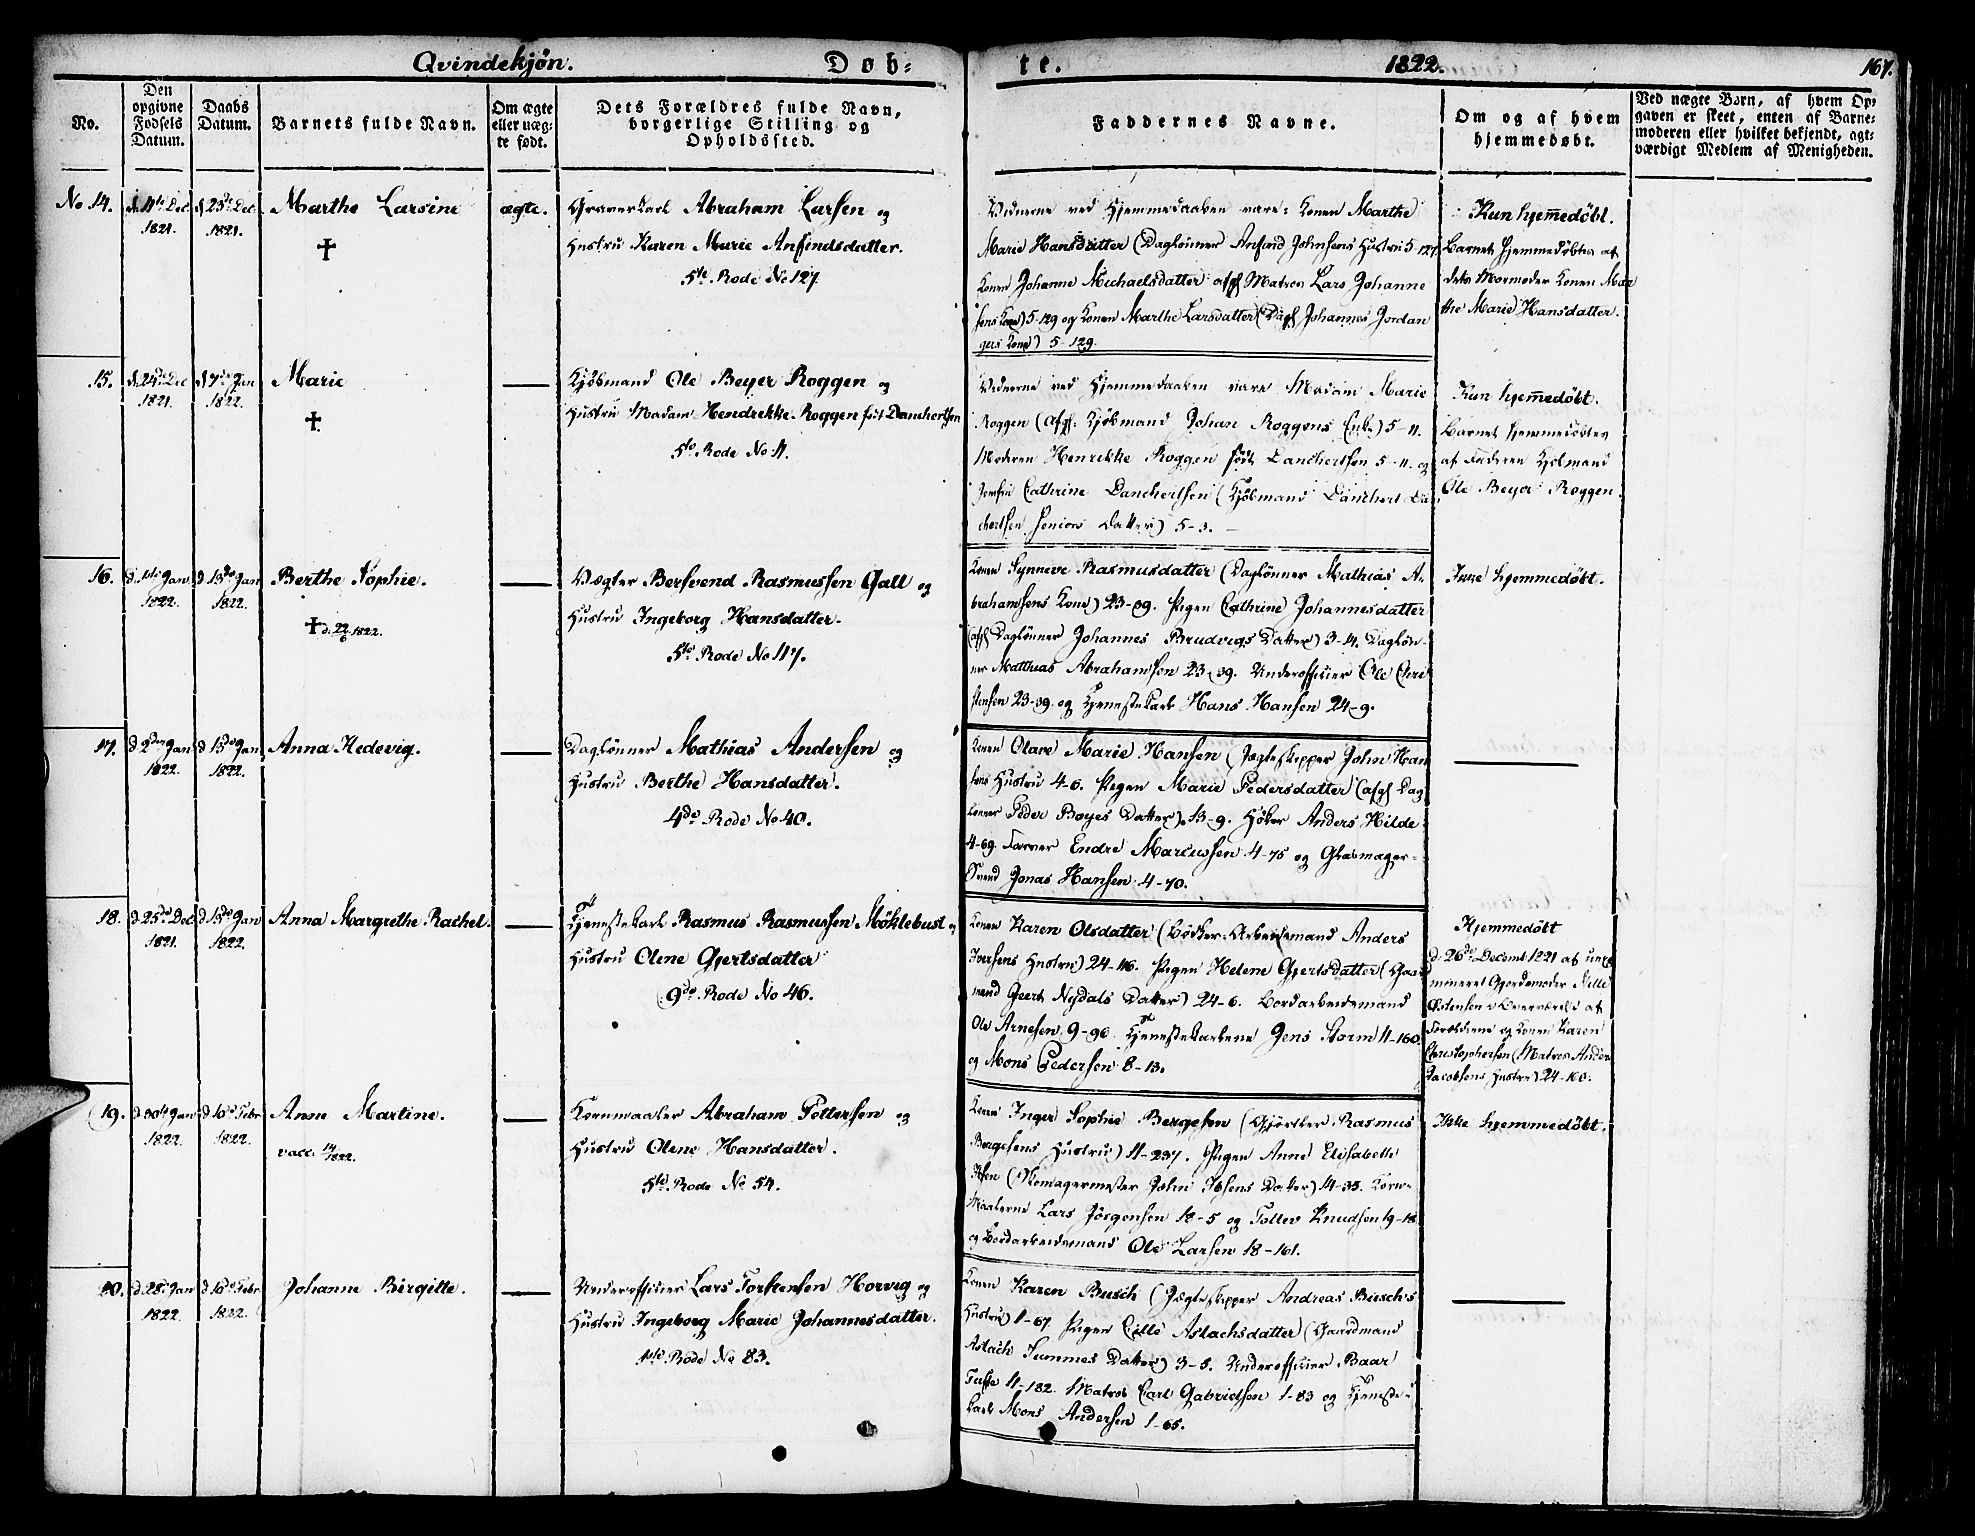 Qvindekjøn. Døb= te. 1822. 167.
No.
Den opgivne Fødsels Datum.
Daabs Datum.
Barnets fulde Navn.
Om ægte eller uæg- te født.
Dets Forældres fulde Navn, borgerlige Stilling og Opholdssted.
Faddernes Navne.
Om og af hvem hjemmedøbt.
Ved uægte Børn, af hvem Op-
gaven er skeet, enten af Barne-
moderen eller hvilket bekjendt, agt-
værdigt Medlem af Menigheden.
No 14. d. 11te Dec 1821. d 23de Dec 1821. Marthe Larsine † ægte.
Graverkarl Abraham Larsen og
Hustru Karen Marie Anfindsdatter.
5te Rode No 127.
Vidnerne ved Hjemmedaaben vare: Konen Marthe
Marie Hansdatter (Daglønner Anfind Johnsens Hustru 5-127.
Konen Johanne Michaelsdatter afg Matros Lars Johanne
sens Kone) 5-129 og Konen Marthe Larsdatter (Dagl Johannes Jordan
gers Kone) 5-129.
Kun hjemedøbt.
Barnet hjemmedøbtes af
dets Mormoder Konen Mar
the Marie Hansdatter.
15. d 24de Dec 1821. d 7de Jan 1822. Marie †
Kjøbmand Ole Beyer Roggen og
Hustru Madam Hendrikke Roggen født Danchertsen
5te Rode No 11.
Vidnerne ved Hjemmedaaben vare Madam Marie
Roggen (afg: Kjøbmand Johan Roggens Enke) 5-11.
Moderen Henrikke Roggen født Danchertsen 5-11. og
Jomfru Cathrine Danchertsen (Kjøbmand Danchert Da
chertsen seniors Datter) 5-3.
Kun hjemedøbt.
Barnet hjemmedøbtes
af Faderen Kjøbmand
Ole Beyer Roggen.
16. d. 1ste Jan 1822. d 13de Jan 1822. Berthe Sophie. † d. 22/6 1822.
Vægter Bersvend Rasmussen Gall og
Hustru Ingeborg Hansdatter.
5te Rode No 117.
Konen Synneve Rasmusdatter (Dagløner Mathias A-
brahamsens Kone) 23-39. Pigen Cathrine Johannesdatter
(afg Dagløner Johannes Brudvigs Datter) 3-4. Dagløn-
ner Matthias Abrahamsen 23-39. Underofficier Ole Chri
stensen 23-39. og Tjenestekarl Hans Hansen 24-9.
Ikke hjemmedøbt.
17. d 2den Jan 1822. d 13de Jan 1822. Anna Hedevig.
Daglønner Mathias Andersen og
Hustru Berthe Hansdatter.
4de Rode No 40.
Konen Olave Marie Hansen (Jægteskipper John Han
sens Hustru 4-6. Pigen Marie Pedersdatter (afg Dag
lønner Peder Boyes Datter). 13-9. Høker Anders Hilde
4-69. Farver Endre Marcussen 4-75 og Glasmager-
Svend Jonas Hansen 4-70.
18. d 25de Dec 1821. d 13de Jan 1822. Anna Margrethe Rachel.
Tjenestekarl Rasmus Rasmussen Møklebust og
Hustru Olene Gjertsdatter
9de Rode No 46.
Konen Karen Olsdatter (Bødker-Arbeidsmand Anders
Iversens Hustru) 24-116. Pigen Helene Gjertsdatter (Gaar
mand Geert Nydals Datter) 24-6. Bordarbeidsmand
Ole Arnesen 9-96. Tjenestekarlene Jens Storm 11-160.
og Mons Pedersen 8-13.
Hjemmedøbt
d. 26de Decemb 1821 af uexa
mineret Gjordemoder Sille
Østensen i Overværelse af
Forældrene og Konen Karen
Christophersen (Matros Anders
Jacobsens Hustru) 24-100.
19. d 30te Jan 1822. d 10de Febr 1822. Anne Martine. vacc. 14/ 1822.
Kornmaaler Abraham Pettersen og
Hustru Olene Hansdatter.
5te Rode No 54.
Konen Inger Sophie Bergesen (Gjørtler Rasmus
Bergesens Hustru) 11-237. Pigen Anne Elisabeth
Ibsen (Skomagermester John Ibsens Datter) 4-35. Korn-
Maalerne Lars Jørgensen 18-5 og Tollev Knudsen 19-18
og Bordarbeidsmand Ole Larsen 18-161.
Ikke hjemmedøbt.
20. d. 28de Jan 1822. d 10de Febr 1822. Johanne Birgitte.
Underofficier Lars Torstensen Horvig og
Hustru Ingeborg Marie Johannesdatter.
1ste Rode No 83.
Konen Karen Busch (Jægteskipper Andreas Busch's
Hustru) 1-67 Pigen Cille Aslachsdatter (Gaardmand
Aslach Tummes Datter) 3-5. Underofficier Baar
Tufte 11-182. Matros Carl Gabrielsen 1-83 og Tjeneste-
karl Mons Andersen 1-65.